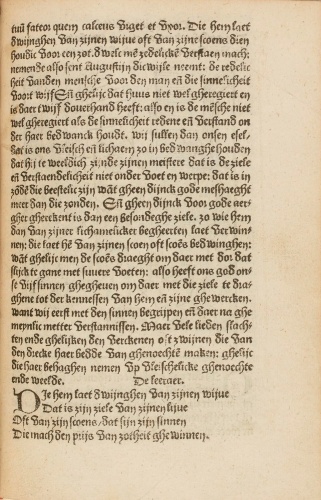 tuū fatto: quem calceus vrget et vxor. Die hem laet
dwinghen van zijnen wijue oft van zijne scoens dien
houdic voor een zot. dwelc mē zedelickē verstaen mach:
nemende also sent Augustijn die wijse neemt: de redelic
heit van den mensche voor den man en̄ die sinnelicheit
voort wijf En̄ ghelijc dat huus niet wel gheregiert en
is daer twijf douerhand heeft: also en is de mēsche niet
wel gheregiert als de sinnelicheit redene en̄ verstand on
der haer bedwanck houdt. wy sullen dan onsen esel,
dat is ons vleisch en̄ lichaem zo in bedwanghe houden
dat hij te weeldich zijnde zijnen meistere dat is de ziele
en̄ verstaendelicheit niet onder voet en werpe: dat is in
zōdē die beestelic zijn wāt gheen dijnck gode meshaeght
meer dan die zonden. En̄ gheen dijnck voor gode ner-
gher gherekent is dan een besondeghe ziele. zo wie hem
dan van zijner lichamelicker begheerten laet verwin-
nen: die laet hē van zijnen scoen oft scoēs bedwinghen:
wāt ghelijc men de scoēs draeght om daer met dor dat
slijck te gane met suuere voeten: also heeft ons god on-
se vijf sinnen ghegheuen om daer met die ziele te dra-
ghene tot der kennessen van hem en̄ zijne ghewercken.
want wij eerst met den sinnen begrijpen en̄ daer na ghe
meynlic metter verstannissen. Maer vele lieden slach-
ten ende ghelijcken den verckenen oft zwijnen die van
den diecke haer bedde van ghenoechte maken: ghelijc
die haer behaghen nemen vp vleischelicke ghenoechte
ende weelde. De leeraer.
DIe hem laet dwijnghen van zijnen wijue
Dat is zijn ziele van zijnen lijue
Oft van zijn scoens, dat sijn zijn sinnen
Die mach den prijs van zotheit ghewinnen.